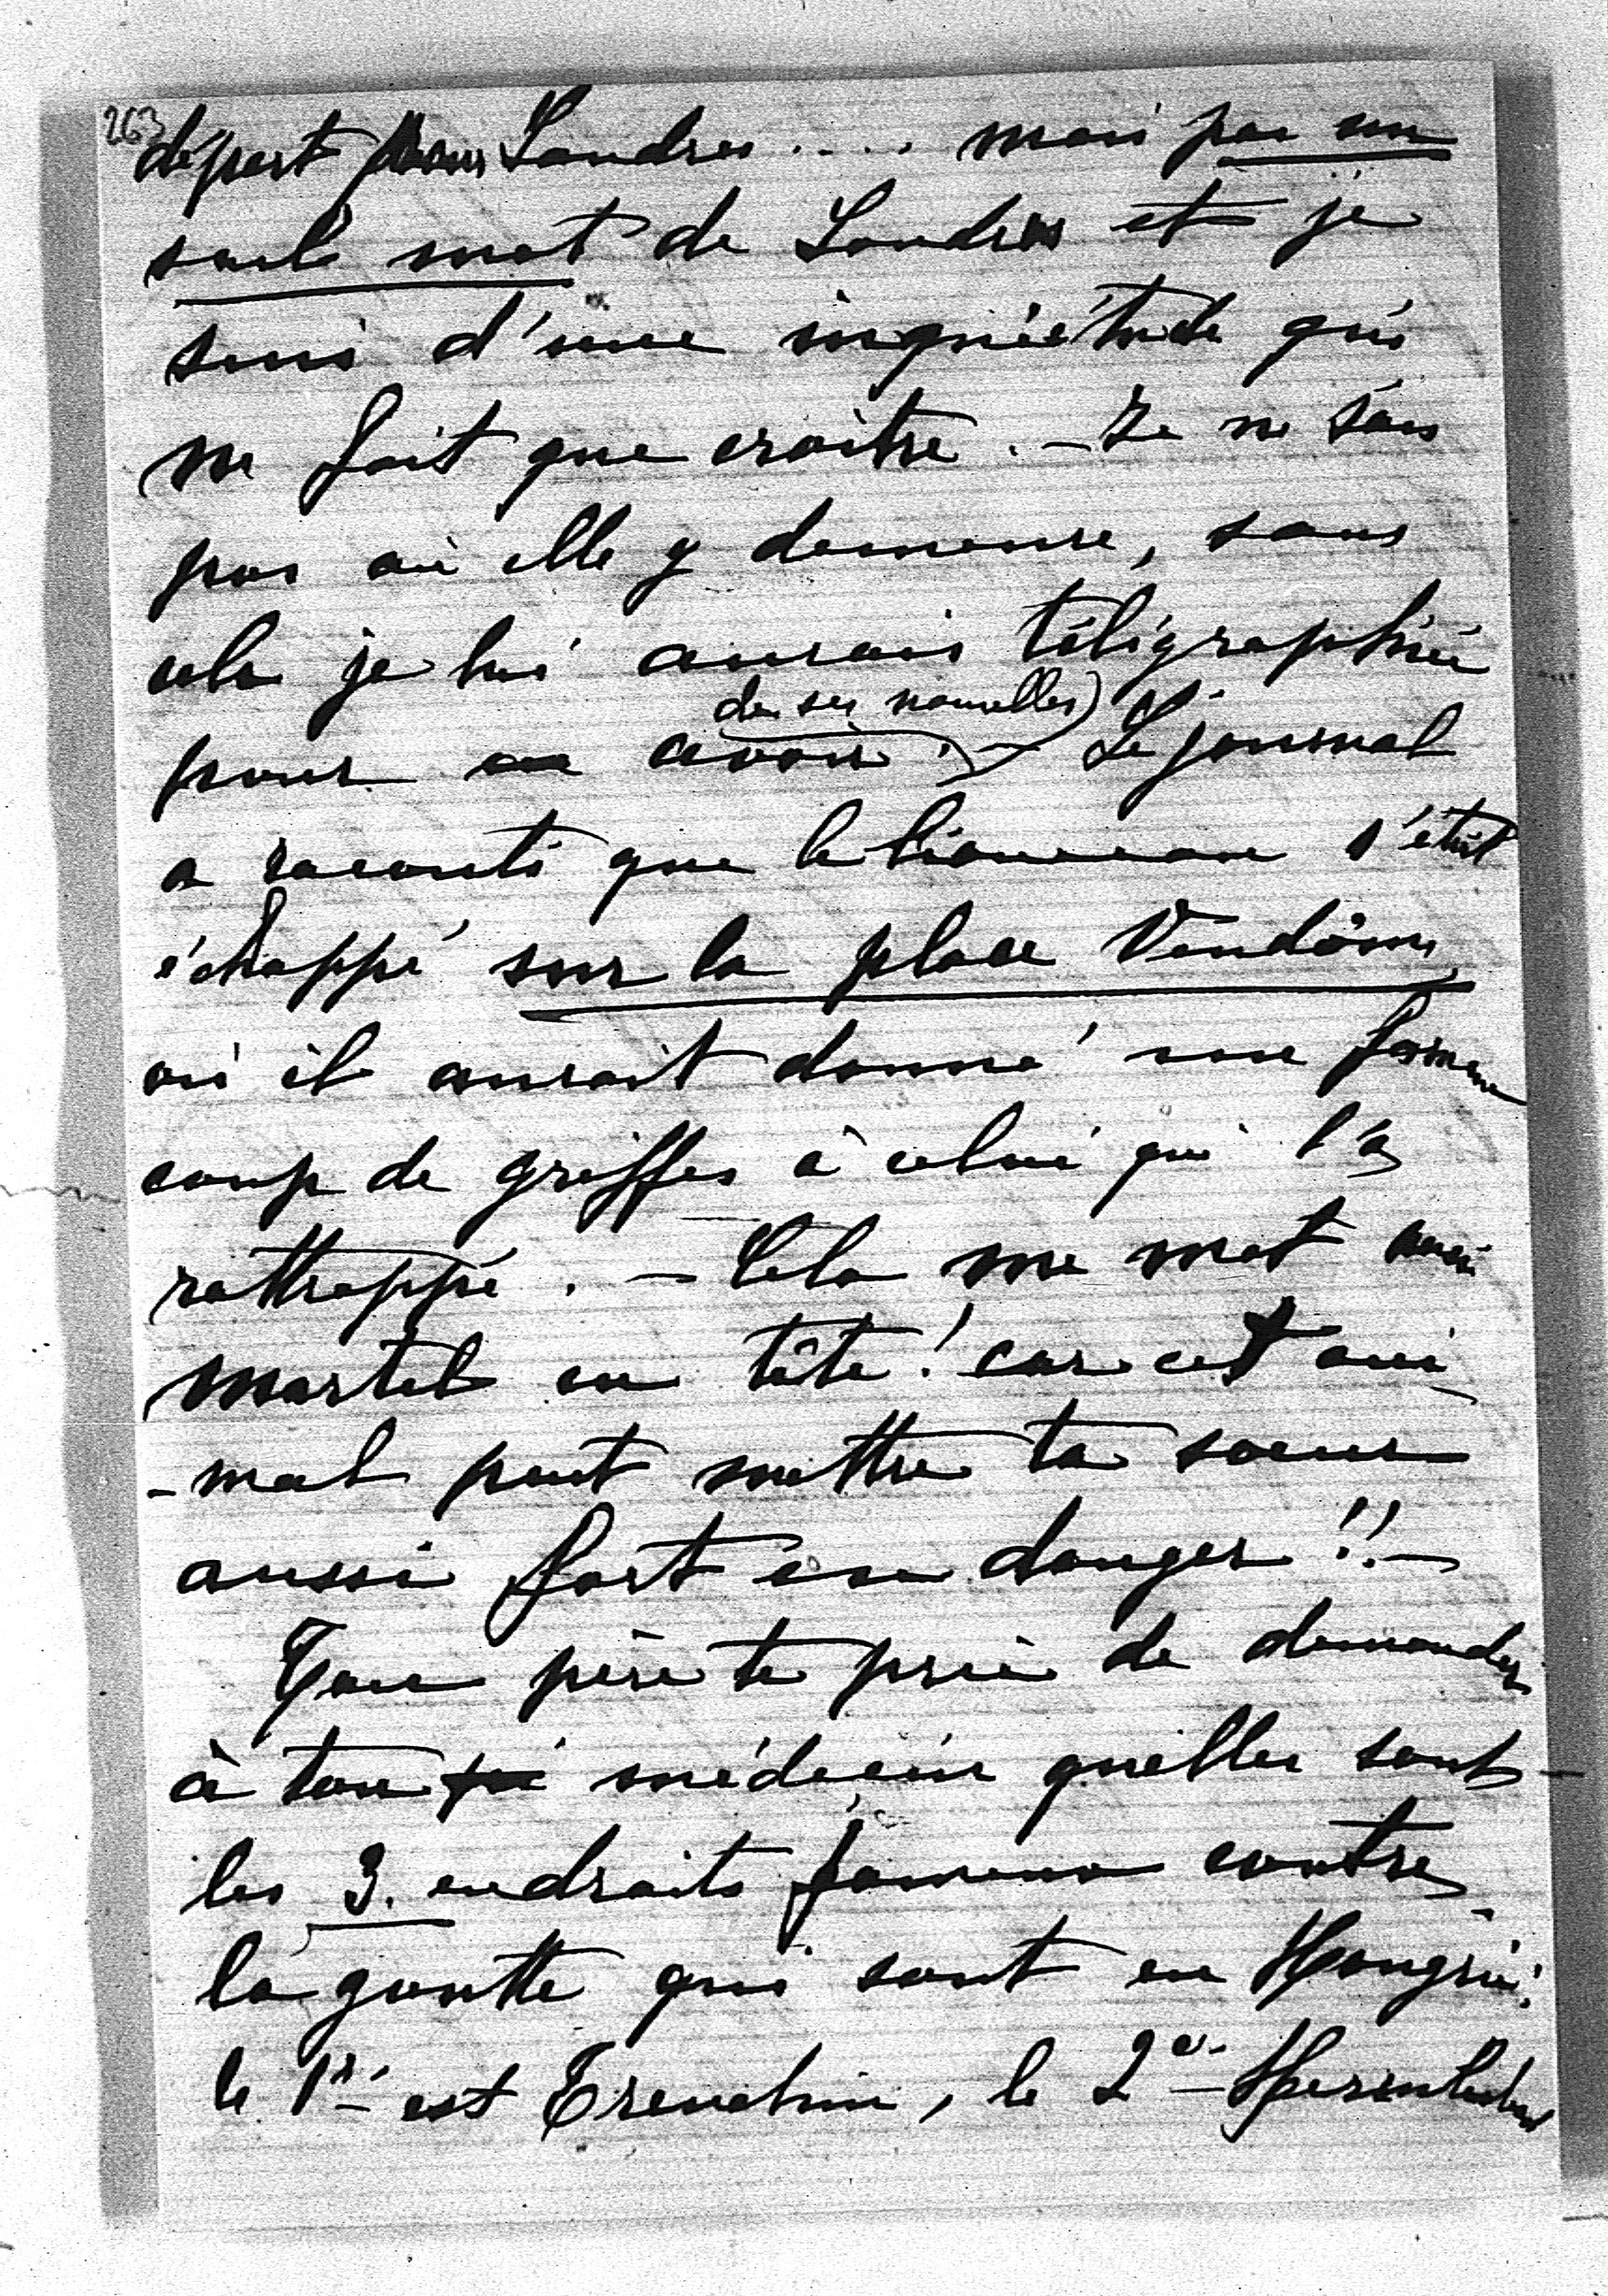 263
départ pour Londres .... mais pas un
seul mot de Londres et je
suis d'une inquiétude qui
ne fait que croitre. - Je ne sais
pas où elle y demeure, sans
cela je lui aurais télégraphié
de ses nouvelles
pour en avoir. - Le journal
a raconté que le lionceau s'était
échappé sur la place Vendôme,
où il aurait donné une fameux
coup de griffes à celui qui l'a
rattrappé. - Cela me met
martel en tête! car cet ani
-mal peut mettre ta soeur
aussi fort en danger!! -
Ton père te prie de demander
à ton médecin quelles sont
les 3. endroits fameux contre
la goutte qui sont en Hongrie:
le 1er est Trenchin, le 2e -